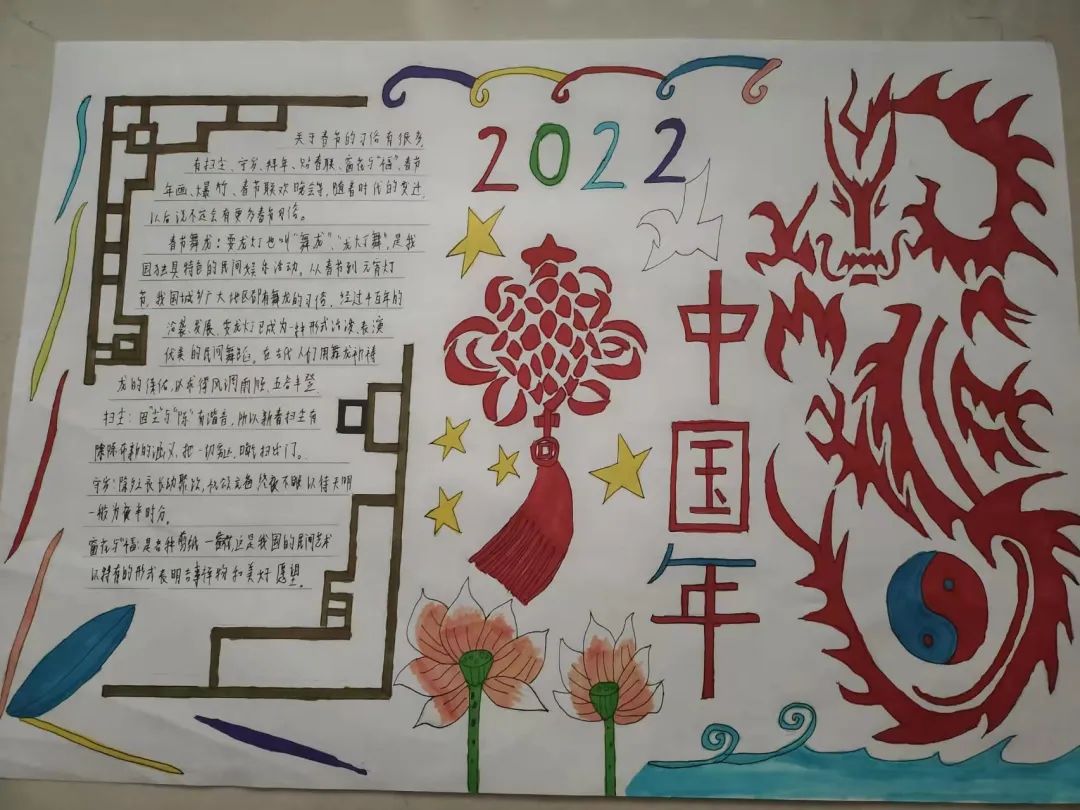 2022
中国年
关于春节的习俗有很多,
有扫尘、守岁、拜年、贴春联、窗花与“福”、春节
年画、爆竹、春节联欢晚会等,随着时代的变迁
以后说不定会有更多春节习俗。
春节舞龙:耍龙灯也叫“舞龙”、“龙灯舞”,是我
国独具特色的民间娱乐活动。从春节到元宵灯
节,我国城乡广大地区都有舞龙的习俗,经过千百年的
沿袭、发展,耍龙灯已成为一种形式活泼、表演
优美的民间舞蹈。在古代人们用舞龙祈祷
龙的保佑,以求得风调雨顺,五谷丰登
扫尘:因“尘”与“陈”有谐音,所以新春扫尘有
除陈布新的涵义,把一切 扫出门。
守岁: 终夜不眠以待天明
一般为夜半时分。
窗花与“福”是 剪纸 这是我国的民间艺术
以特有的形式表明吉事祥物和美好愿望。